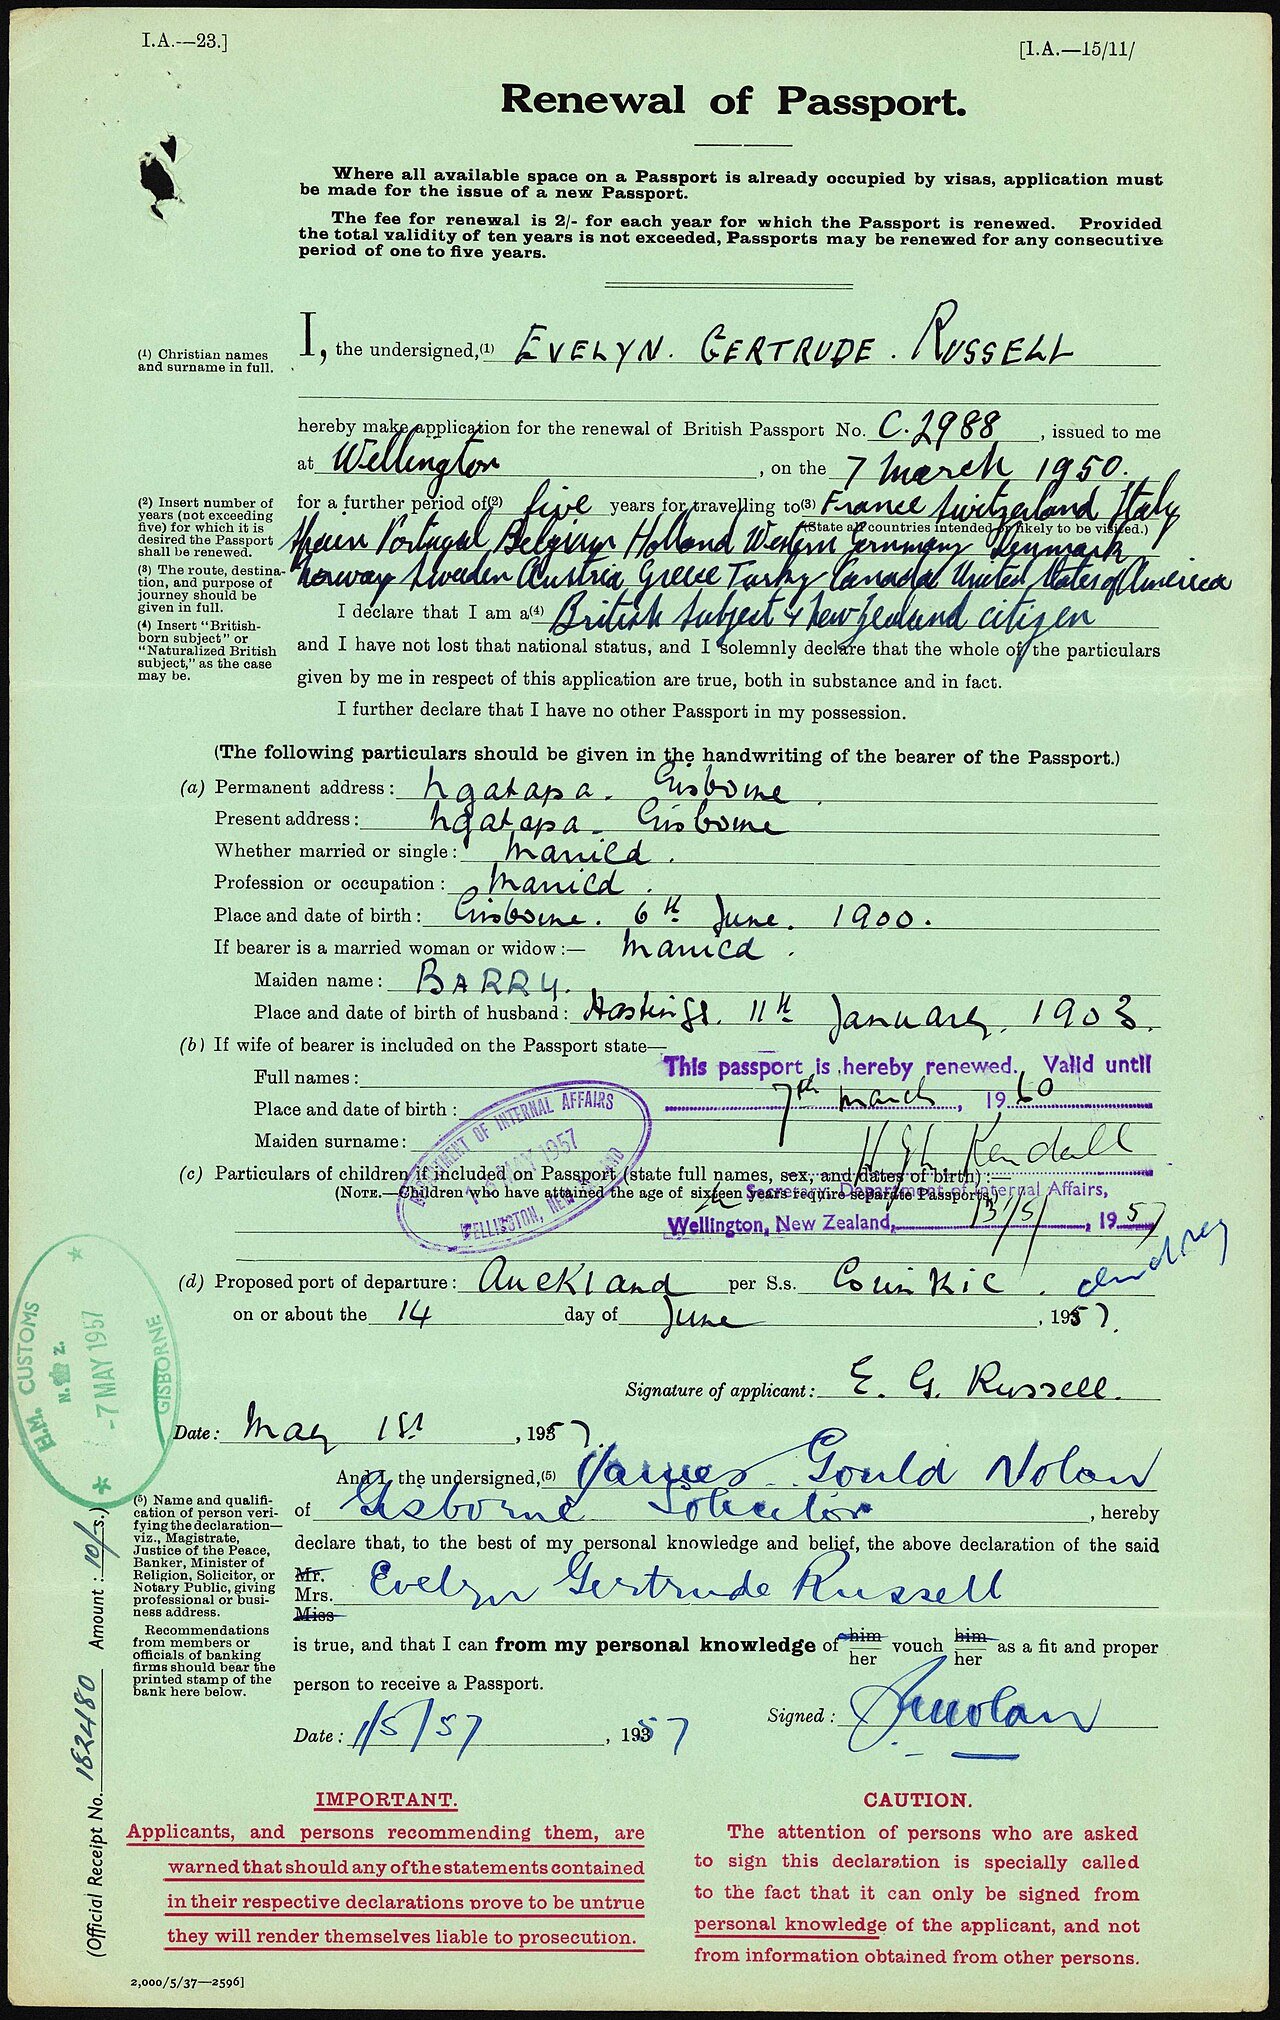 I.A.—23.]
[I.A.—15/11/
Renewal of Passport.
Where all available space on a Passport is already occupied by visas, application must
be made for the issue of a new Passport.
The fee for renewal is 2/- for each year for which the Passport is renewed. Provided
the total validity of ten years is not exceeded, Passports may be renewed for any consecutive
period of one to five years.
(1) Christian names
and surname in full.
I, the undersigned,(1) EVELYN. GERTRUDE. RUSSELL
hereby make application for the renewal of British Passport No. C.2988, issued to me
at Wellington, on the 7 March 1950.
(2) Insert number of
years (not exceeding
five) for which it is
desired the Passport
shall be renewed.
(3) The route, destina-
tion, and purpose of
journey should be
given in full.
(4) Insert "British-
born subject" or
"Naturalized British
subject," as the case
may be.
for a further period of(2) five years for travelling to(3) France Switzerland Italy
(State all countries intended or likely to be visited.)
Spain Portugal Belgium Holland Western Germany Denmark
Norway Sweden Austria Greece Turkey Canada United States of America
I declare that I am a(4) British Subject & New Zealand citizen
and I have not lost that national status, and I solemnly declare that the whole of the particulars
given by me in respect of this application are true, both in substance and in fact.
I further declare that I have no other Passport in my possession.
(The following particulars should be given in the handwriting of the bearer of the Passport.)
(a) Permanent address: Ngatapa. Gisborne.
Present address: Ngatapa. Gisborne
Whether married or single: Married.
Profession or occupation: Married.
Place and date of birth: Gisborne. 6th June. 1900.
If bearer is a married woman or widow:— Married.
Maiden name: BARRY.
Place and date of birth of husband: Hastings. 11th January. 1903.
(b) If wife of bearer is included on the Passport state—
Full names:
Place and date of birth:
Maiden surname:
This passport is hereby renewed. Valid until
7th March, 1960
Kendall
Secretary, Department of Internal Affairs,
Wellington, New Zealand, 13/5/, 1957
DEPARTMENT OF INTERNAL AFFAIRS
MAY 1957
WELLINGTON, NEW ZEALAND
(c) Particulars of children if included on Passport (state full names, sex, and dates of birth):—
(NOTE.—Children who have attained the age of sixteen years require separate Passports.)
(d) Proposed port of departure: Auckland per S.s. Corinthic.
on or about the 14 day of June, 1957.
H.M. CUSTOMS
N. Z.
-7 MAY 1957
GISBORNE
Signature of applicant: E. G. Russell.
Date: May 1st, 1957.
And I, the undersigned,(5) James Gould Nolan
of Gisborne Solicitor, hereby
declare that, to the best of my personal knowledge and belief, the above declaration of the said
Mr.
Mrs. Evelyn Gertrude Russell
Miss
is true, and that I can from my personal knowledge of him her vouch him her as a fit and proper
person to receive a Passport.
(5) Name and qualifi-
cation of person veri-
fying the declaration—
viz., Magistrate,
Justice of the Peace,
Banker, Minister of
Religion, Solicitor, or
Notary Public, giving
professional or busi-
ness address.
Recommendations
from members or
officials of banking
firms should bear the
printed stamp of the
bank here below.
Signed: JGNolan
Date: 1/5/57, 1957
(Official Receipt No. 182480 Amount: 10/-s.)
IMPORTANT.
Applicants, and persons recommending them, are
warned that should any of the statements contained
in their respective declarations prove to be untrue
they will render themselves liable to prosecution.
CAUTION.
The attention of persons who are asked
to sign this declaration is specially called
to the fact that it can only be signed from
personal knowledge of the applicant, and not
from information obtained from other persons.
2,000/5/37—2596]